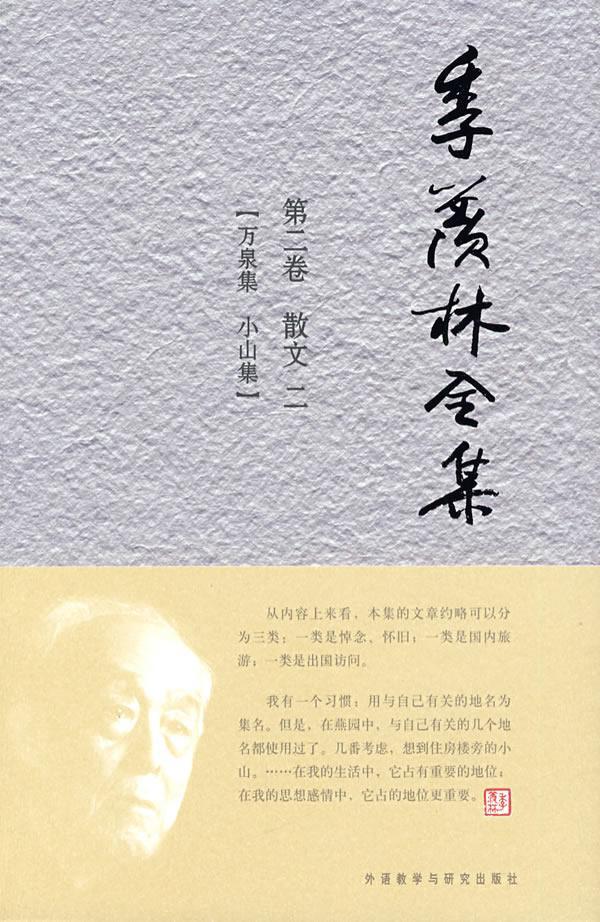 季羡林全集
第二卷 散文 二
【万泉集 小山集】
从内容上来看，本集的文章约略可以分
为三类：一类是悼念、怀旧；一类是国内旅
游；一类是出国访问。
我有一个习惯：用与自己有关的地名为
集名。但是，在燕园中，与自己有关的几个地
名都使用过了。几番考虑，想到住房楼旁的小
山。……在我的生活中，它占有重要的地位；
在我的思想感情中，它占的地位更重要。
季羡林
外语教学与研究出版社